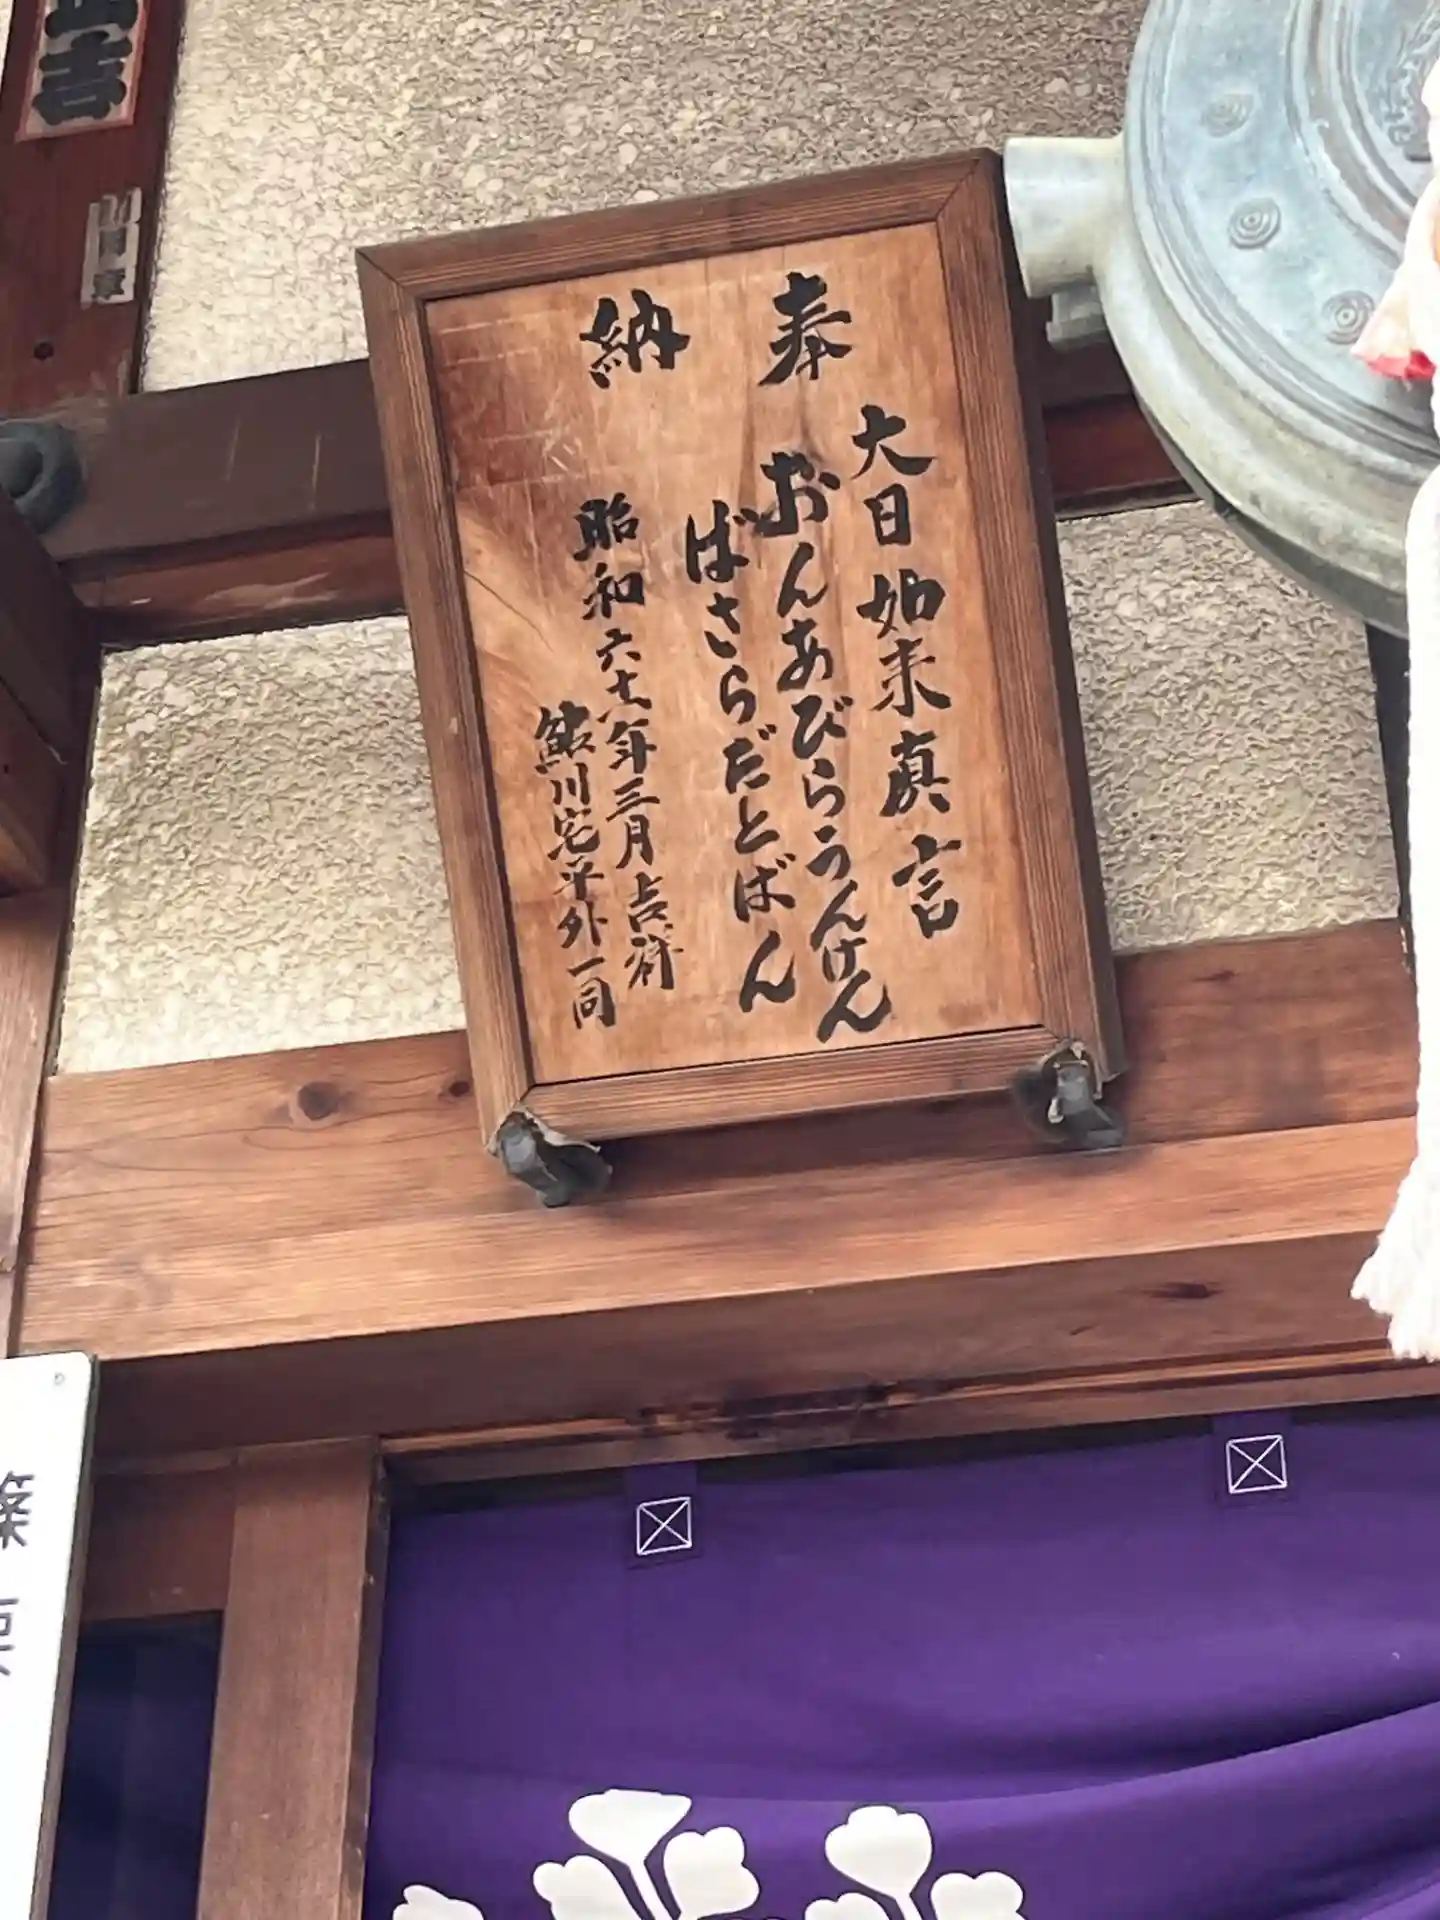 奉納
大日如来真言
おんあびらうんけん
ばさらだとばん
昭和六十八年三月吉祥
鮎川宅平外一同
吉